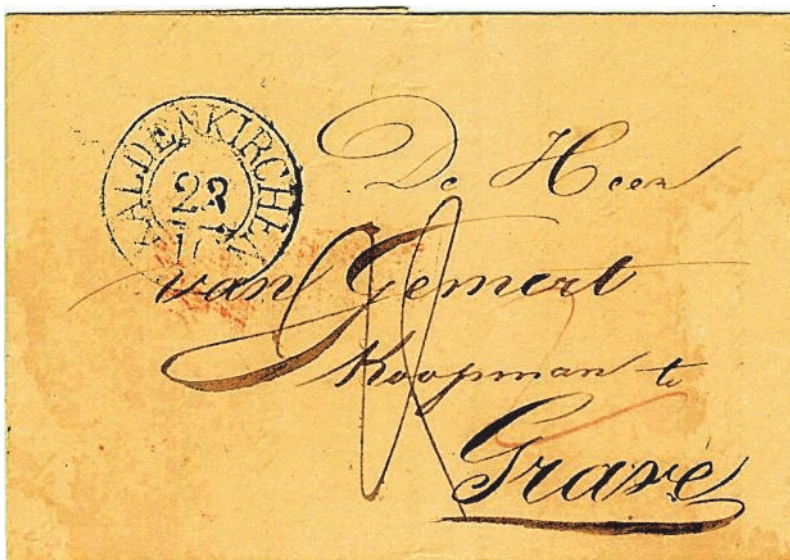 KALDENKIRCHEN
23
De Heer
van Gemert
Koopman te
Grave